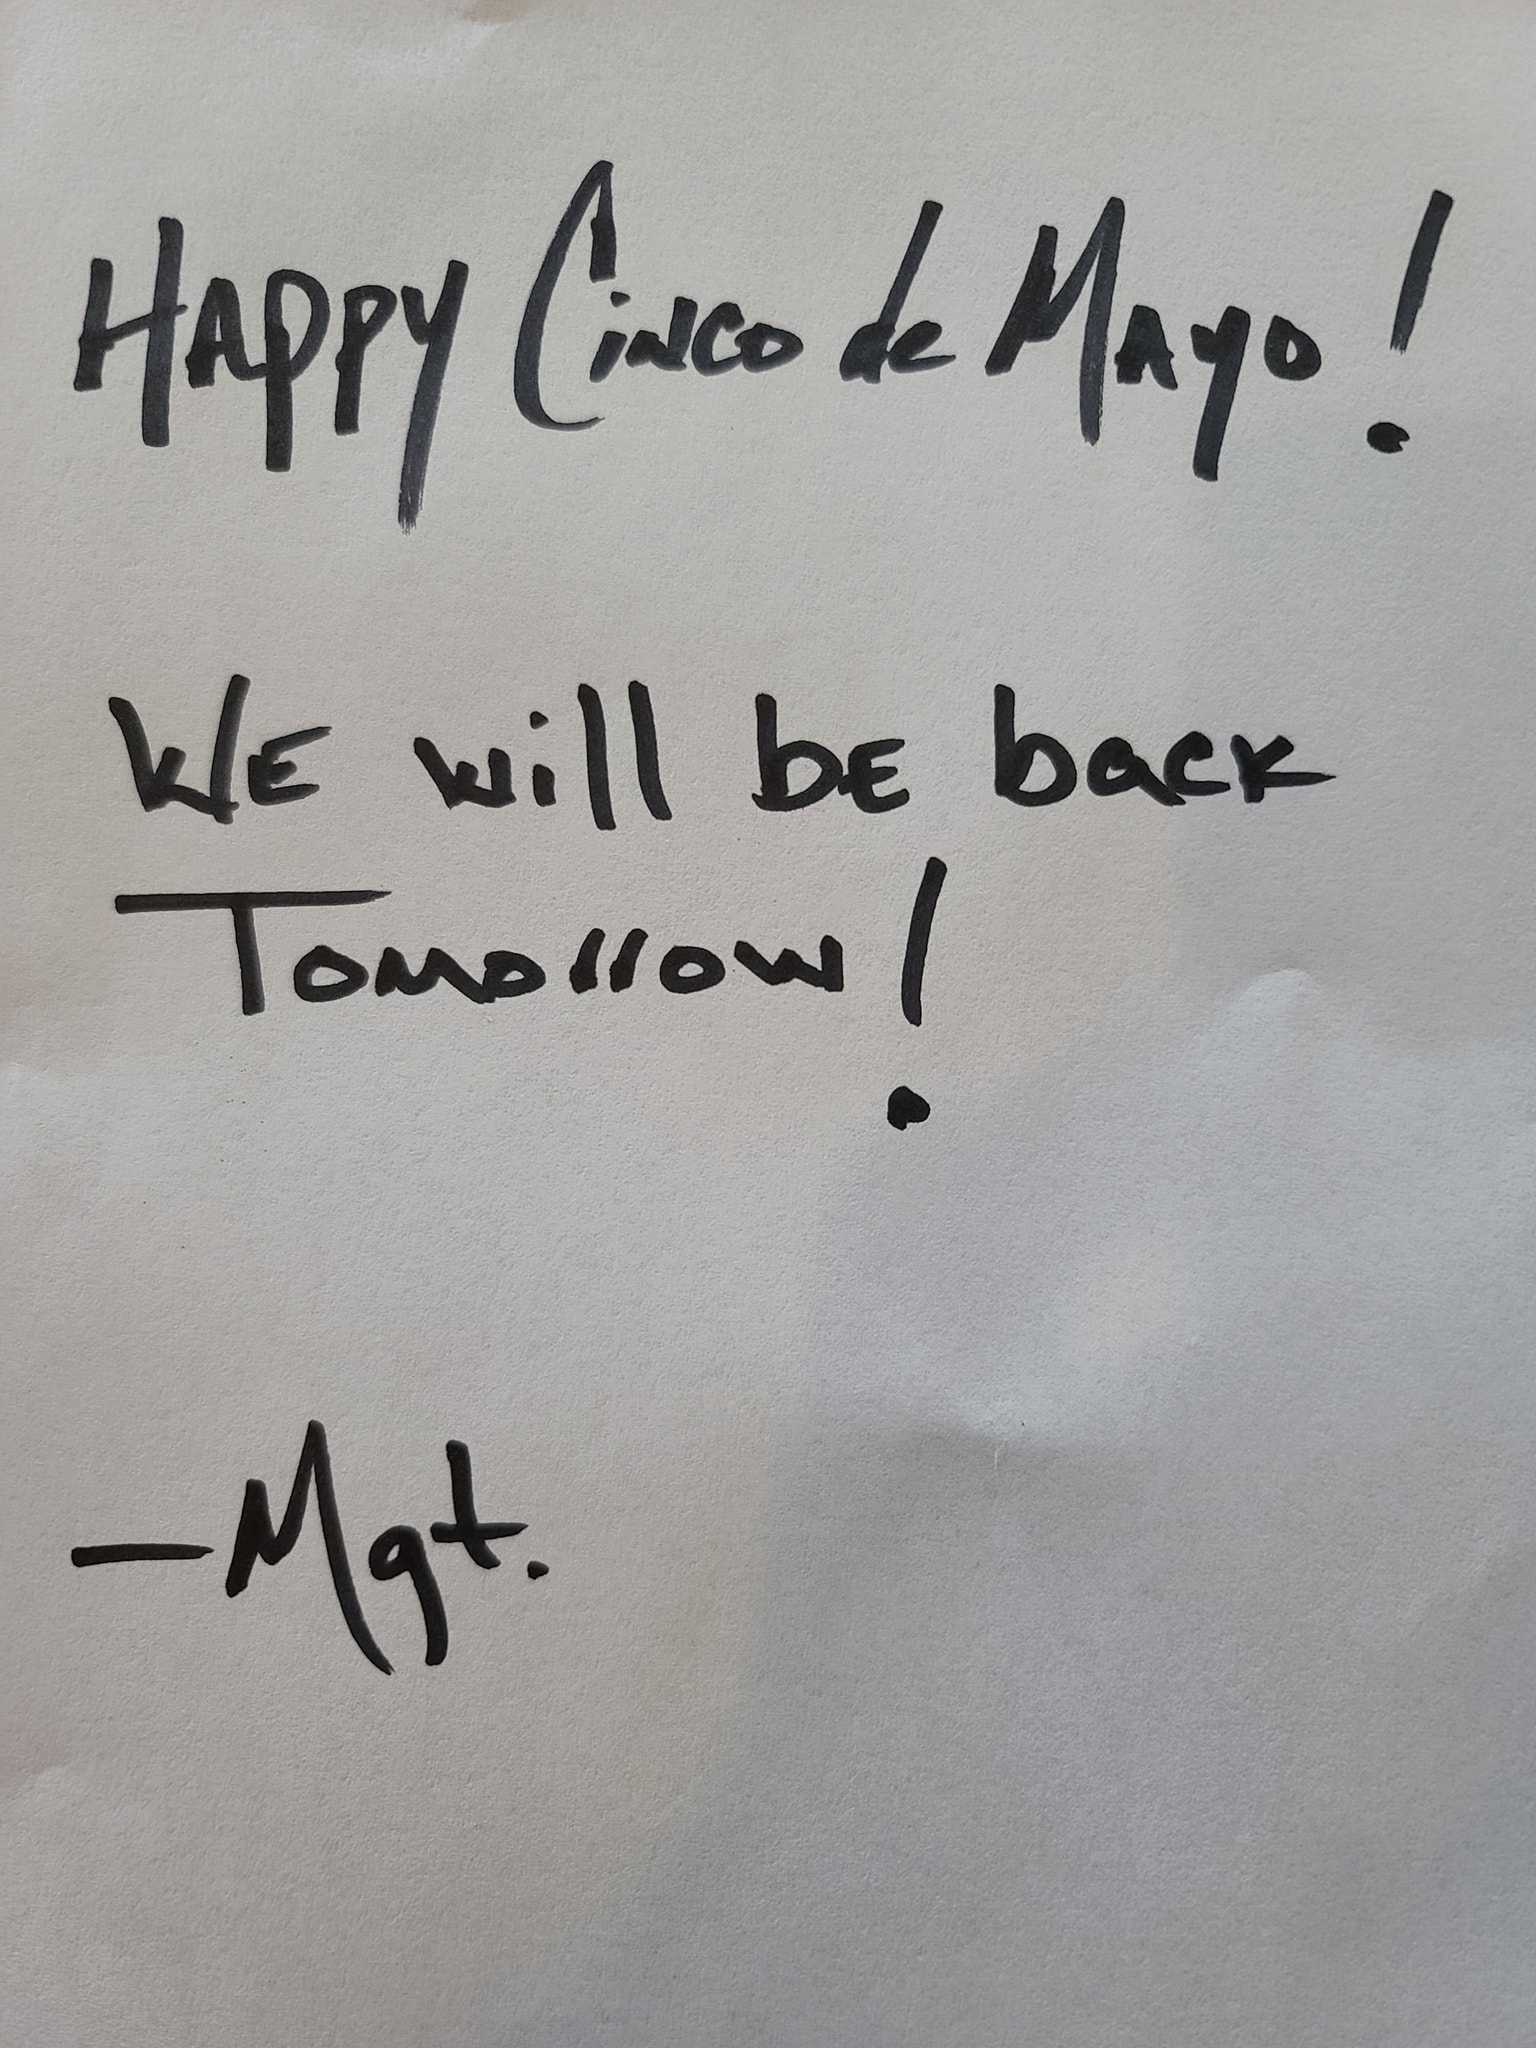 Happy Cinco de Mayo!
We will be back
Tomorrow!
-Mgt.